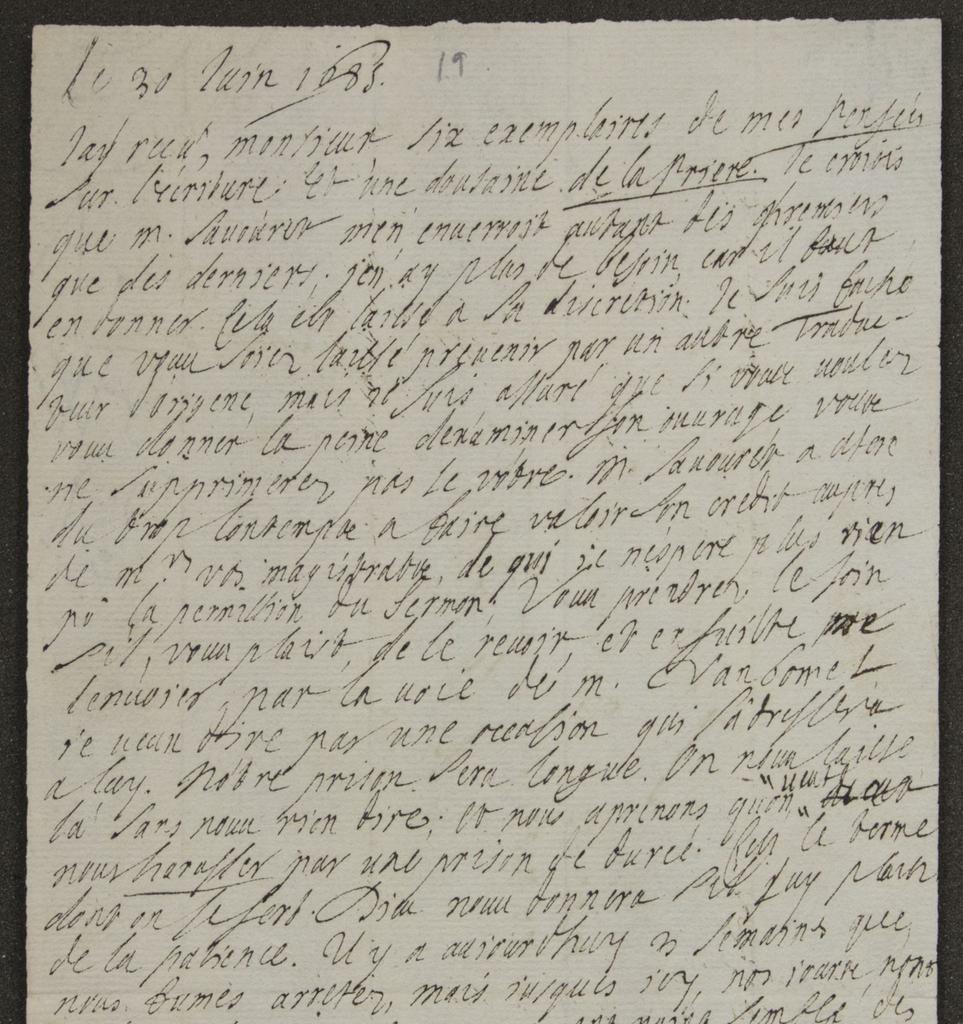 Le 30 Juin 1685.
19
J'ay receu, monsieur six exemplaires de mes Pensées
sur l'écriture. Et une dousaine de la Priere. Je croiois
que m. Savouret m'en envervoit autant des premiers
que des derniers; j'en ay plus de besoin, car il faut
en donner. Cela est laissé a sa discretion. Je suis faché
que vous soiez laissé prevenir par un autre Traduc-
teur d'origene, mais je suis assuré que si vous voulez
vous donner la peine d'examiner son ouvrage vous
ne supprimerez pas le vôtre. M. Savouret a
du trop contempe a faire valoir son credit aupres
de mrs vos magistrats, de qui je n'espere plus rien
pr la permission du Sermon. Vous prendrez le soin
s'il, vous plaist, de le revoir, et ensuitte me
l'envoier par la voie de m. Van
je veux dire par une occasion qui s'adressera
a luy. Nôtre prison sera longue. On nous laisse
là sans nous rien dire; et nous aprenons qu'on "veut"
nous harasser par une prison de durée. C'est le terme
dont on se sert. Dieu nous donnera s'il luy plaist
de la patience. Il y a aujourdhuy 3 semaines que
nous fumes arretez, mais jusques icy, nos jours nont
semblé des